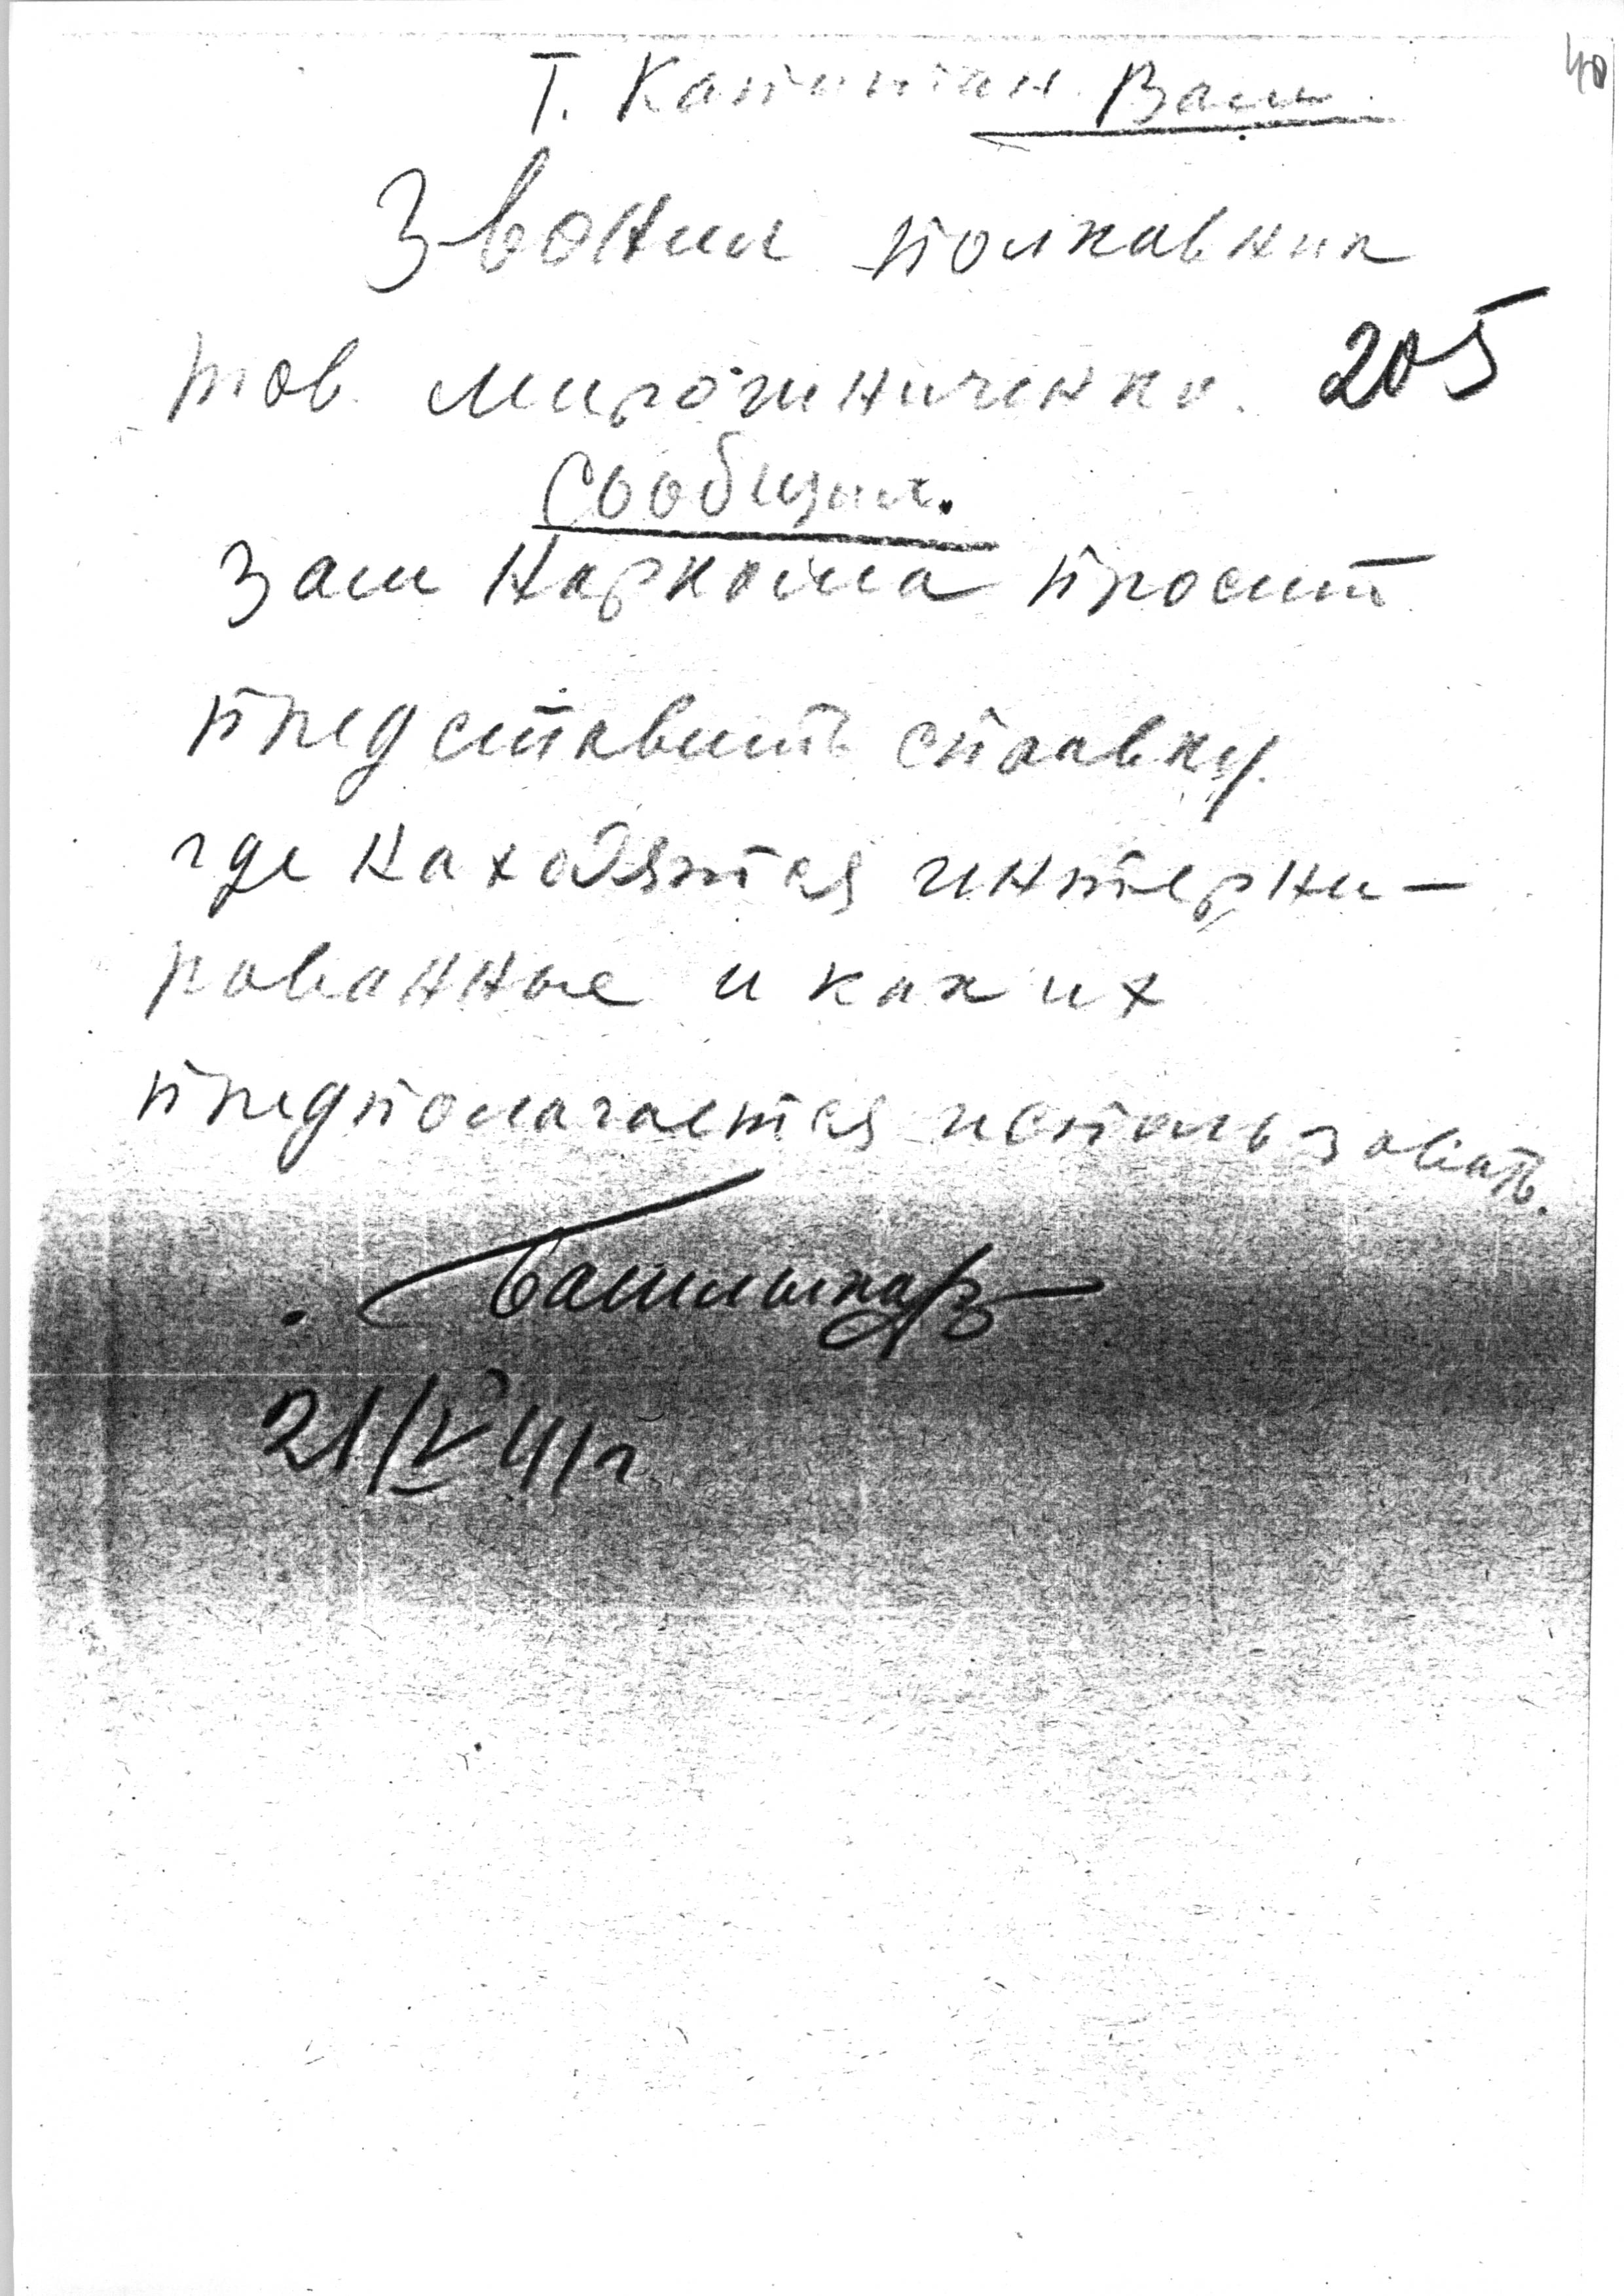 40
Т. Капитан Вам
Звонил полковник
тов. Мирошниченко. 205
Сообщил.
Зам Наркома просит
представить справку
где находятся интерни-
рованные и как их
предполагается использовать.
21/V 41 г.